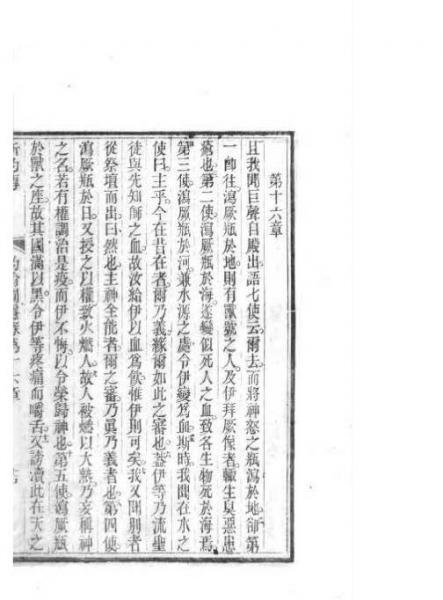 第十六章
且我聞巨聲自殿出語七使云爾去而將神怒之瓶瀉於地卻第
一師往瀉厥瓶於地則有獸號之人及伊拜厥像者輙生臭惡患
瘡也第二使瀉厥瓶於海遂變似死人之血致各生物死於海焉
第三使瀉厥瓶於河兼水源之處令伊變為血斯時我聞在水之
使曰主乎今在昔在者爾乃義緣爾如此之審也蓋伊等乃流聖
徒與先知師之血故汝給伊以血為飲惟伊則可矣我又聞別者
從祭壇而出曰然也主神全能者爾之審乃真乃義者也第四使
瀉厥瓶於日又授之以權致火燃人故人被燃以大熱乃妄稱神
之名若有權調治是疫而伊不悔以令榮歸神也第五使瀉厥瓶
於獸之座故其國滿以黑令伊等疼痛而嚼舌又謗讟此在天之